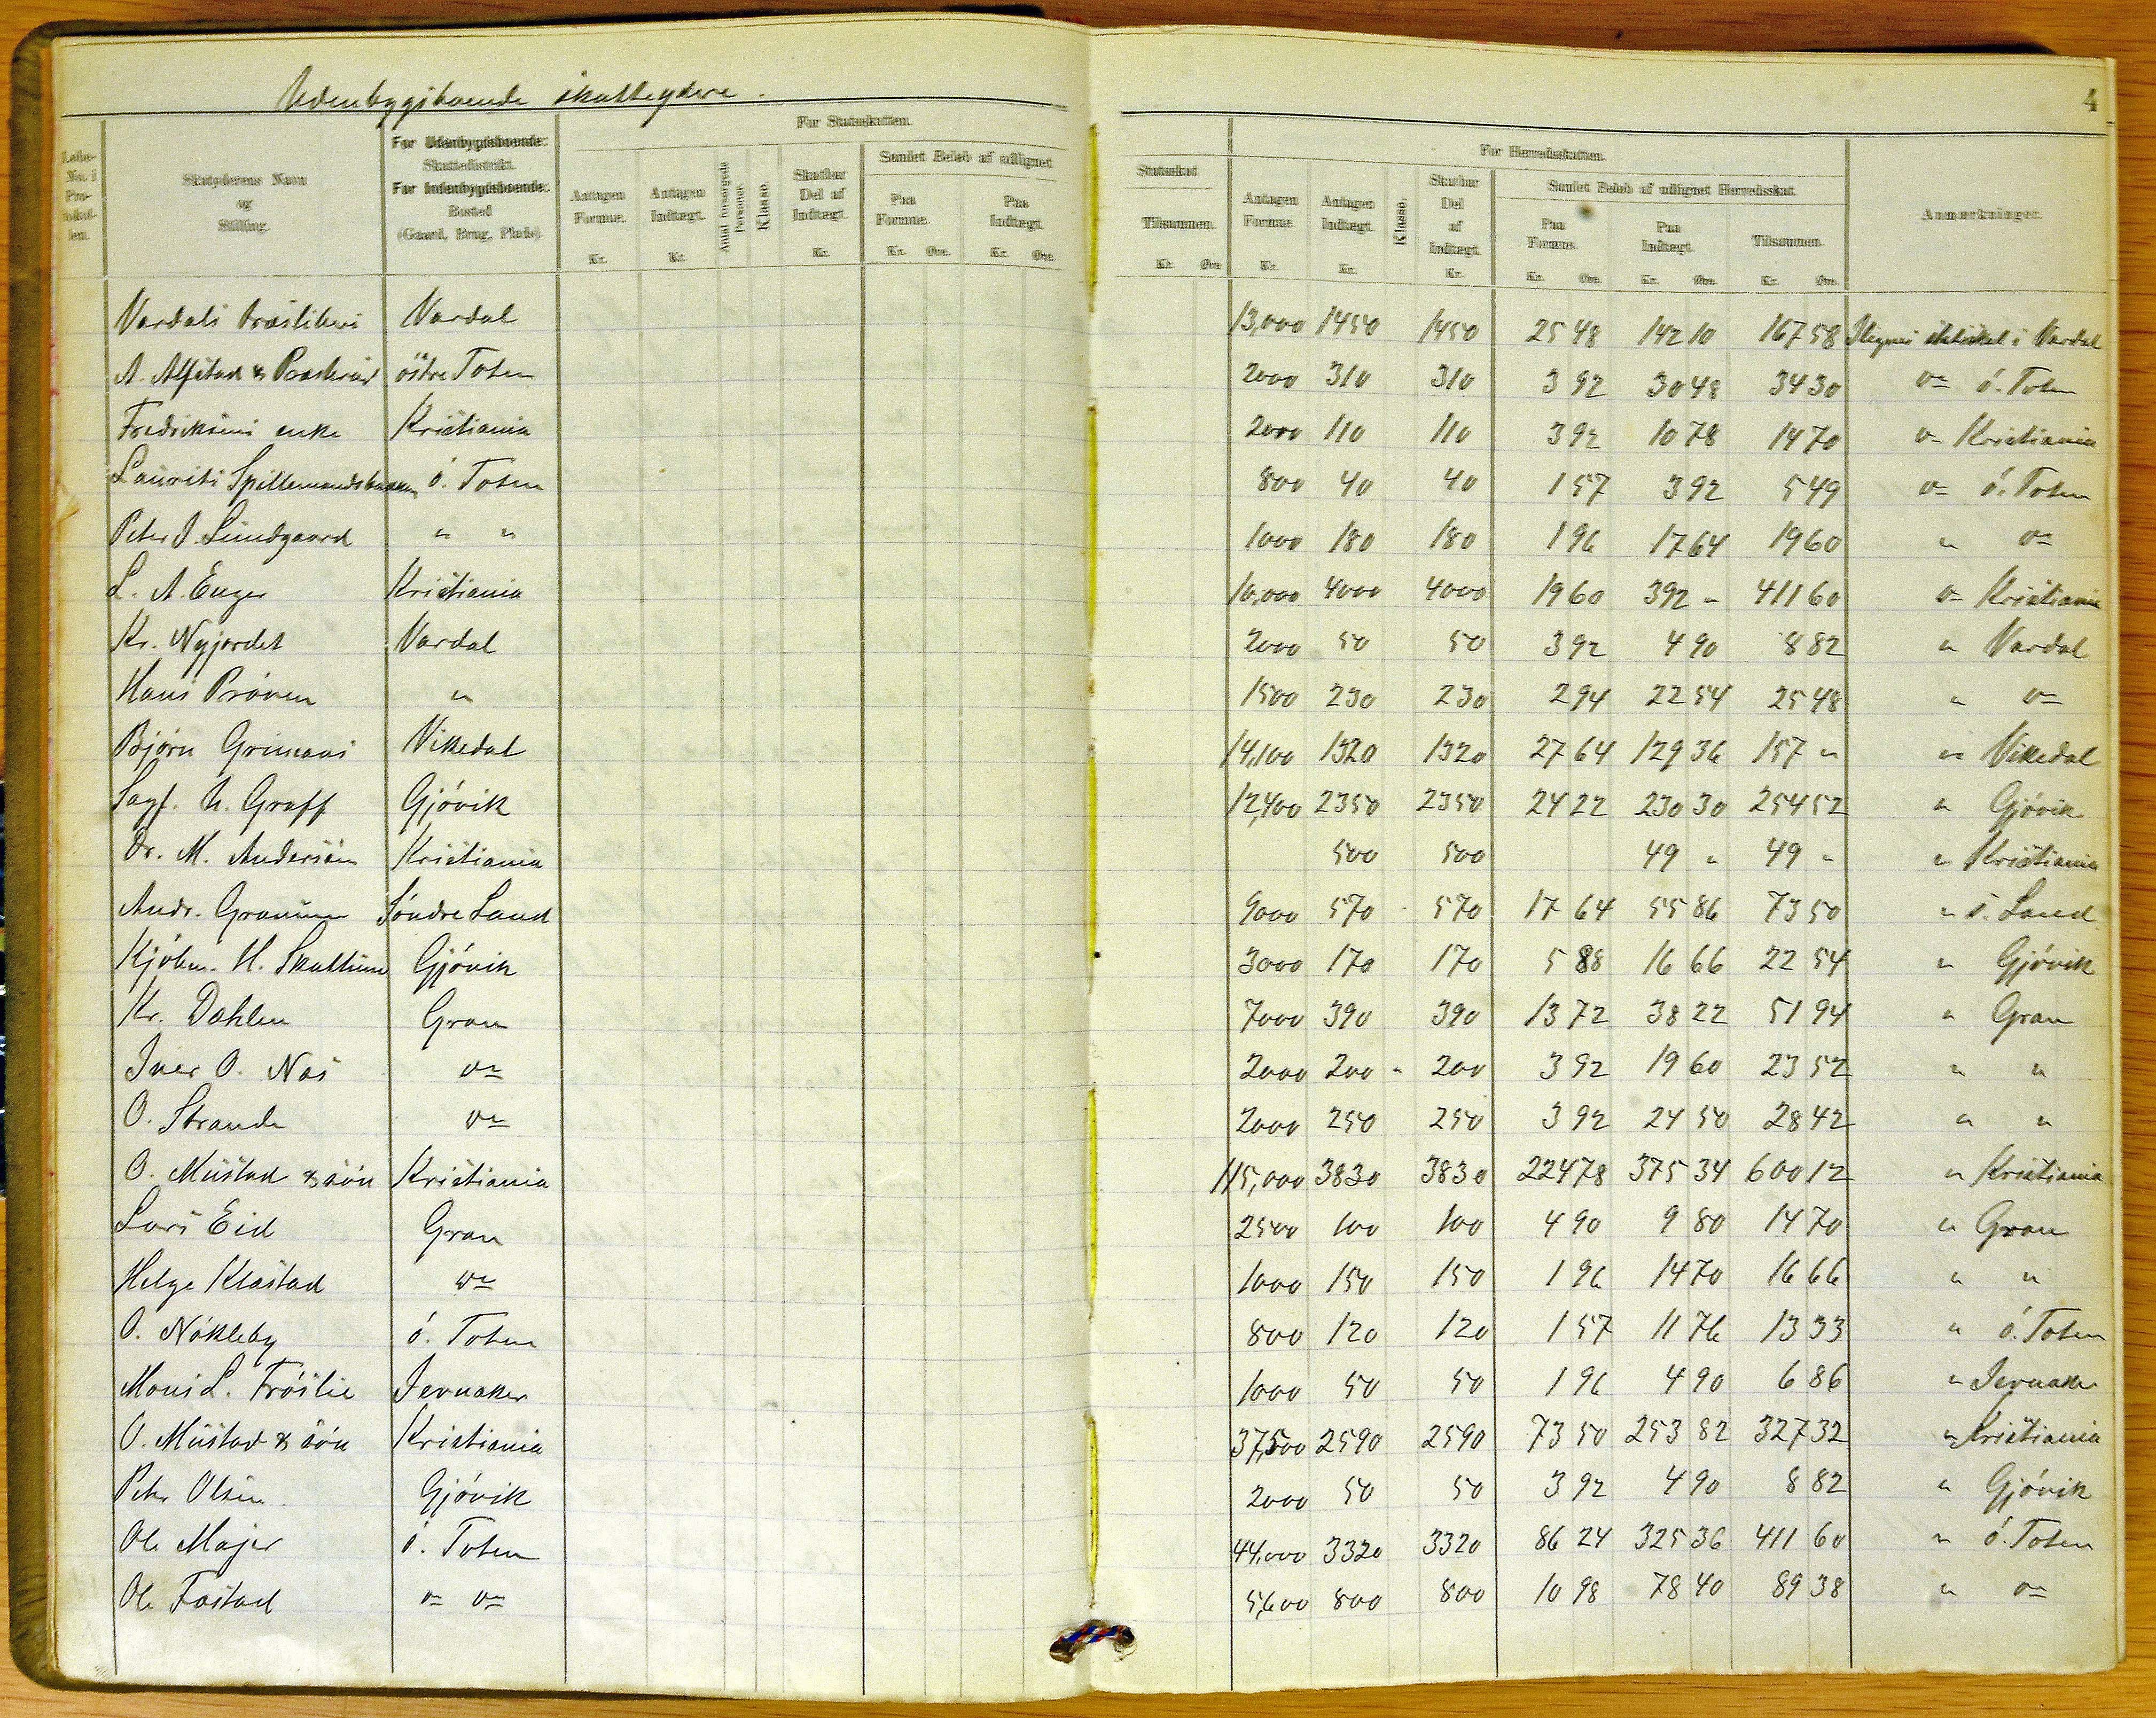 Udenbygsboende skatteydere.
4
Løbe-No. i Pro-tokol-len.
Skatyderens Navn og Stilling.
For Udenbygdsboende: Skattedistrikt. For Indenbygdsboende: Bosted (Gaard, Brug, Plads).
For Statsskatten.
Antagen Formue. Kr.
Antagen Indtægt. Kr.
Antal forsørgede Personer.
Klasse.
Skatbar Del af Indtægt. Kr.
Samlet Beløb af udlignet Statsskat
Paa Formue. Kr. Øre.
Paa Indtægt. Kr. Øre.
Tilsammen. Kr. Øre
For Herredsskatten.
Antagen Formue. Kr.
Antagen Indtægt. Kr.
Klasse.
Skatbar Del af Indtægt. Kr.
Samlet Beløb af udlignet Herredsskat.
Paa Formue. Kr. Øre.
Paa Indtægt. Kr. Øre.
Tilsammen. Kr. Øre.
Anmærkninger.
Vardals træsliberi Vardal 13,000 1450 1450 25 48 142 10 167 58 i Vardal
A. Alfstad & östre Toten 2000 310 310 3 92 30 48 34 30 " ö. Toten
Fredriksens enke Kristiania 2000 110 110 3 92 10 78 14 70 " Kristiania
Laurits ö. Toten 800 40 40 1 57 3 92 5 49 " ö. Toten
Peter J. Lundgaard " " 1000 180 180 1 96 17 64 19 60 " "
L. A. Enger Kristiania 10,000 4000 4000 19 60 392 " 411 60 " Kristiania
Kr. Nyjordet Vardal 2000 50 50 3 92 4 90 8 82 " Vardal
Hans Pröven " 1500 230 230 2 94 22 54 25 48 " "
Bjørn Grimans Vikedal 14,100 1320 1320 27 64 129 36 157 " " Vikedal
Sagf. N. Graff Gjóvik 12,400 2350 2350 24 22 230 30 254 52 " Gjóvik
Dr. M. Andersen Kristiania 500 500 49 " 49 " " Kristiania
Andr. Söndre Land 9000 570 570 17 64 55 86 73 50 " s. Land
Kjóbm. H. Skattum Gjóvik 3000 170 170 5 88 16 66 22 54 " Gjóvik
Kr. Dahlen Gran 7000 390 390 13 72 38 22 51 94 " Gran
Iver O. Næs " 2000 200 " 200 3 92 19 60 23 52 " "
O. Strande " 2000 250 250 3 92 24 50 28 42 " "
O. Mustad & sön Kristiania 115,000 3830 3830 224 78 375 34 600 12 " Kristiania
Lars Eid Gran 2500 100 100 4 90 9 80 14 70 " Gran
Helge Klæstad " 1000 150 150 1 96 14 70 16 66 " "
O. Nókleby ó. Toten 800 120 120 1 57 11 76 13 33 " ó. Toten
Mons L. Fróslie Jevnaker 1000 50 50 1 96 4 90 6 86 " Jevnaker
O. Mustad & són Kristiania 37,500 2590 2590 73 50 253 82 327 32 " Kristiania
Peter Olsen Gjóvik 2000 50 50 3 92 4 90 8 82 " Gjóvik
Ole Majer ó. Toten 44,000 3320 3320 86 24 325 36 411 60 " ó. Toten
Ole Fastad " " 5,600 800 800 10 98 78 40 89 38 " "